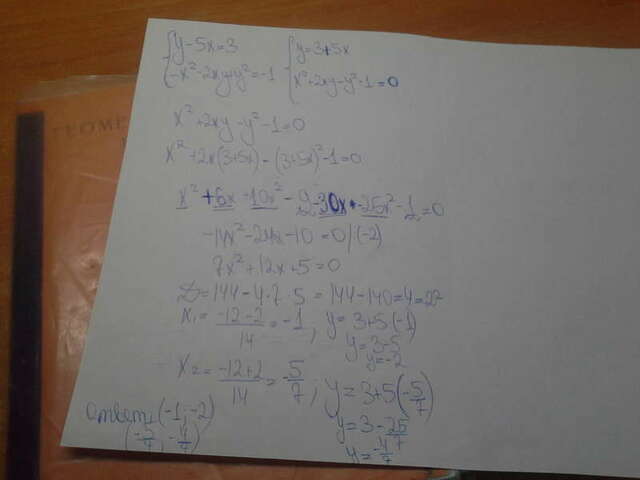 {y-5x=3 {y=3+5x
{-x²-2xy+y²=-1 {x²+2xy-y²-1=0
x²+2xy-y²-1=0
x²+2x(3+5x)-(3+5x)²-1=0
x²+6x+10x²-9-30x-25x²-1=0
-14x²-24x-10=0/(-2)
7x²+12x+5=0
D=144-4·7·5=144-140=4=2²
x₁=(-12-2)/14=-1; y=3+5·(-1)
y=3-5
y=-2
x₂=(-12+2)/14=-5/7; y=3+5(-5/7)
y=3-25/7
y=-4/7
ответ: (-1;-2)
(-5/7; -4/7)
ГЕОМЕ